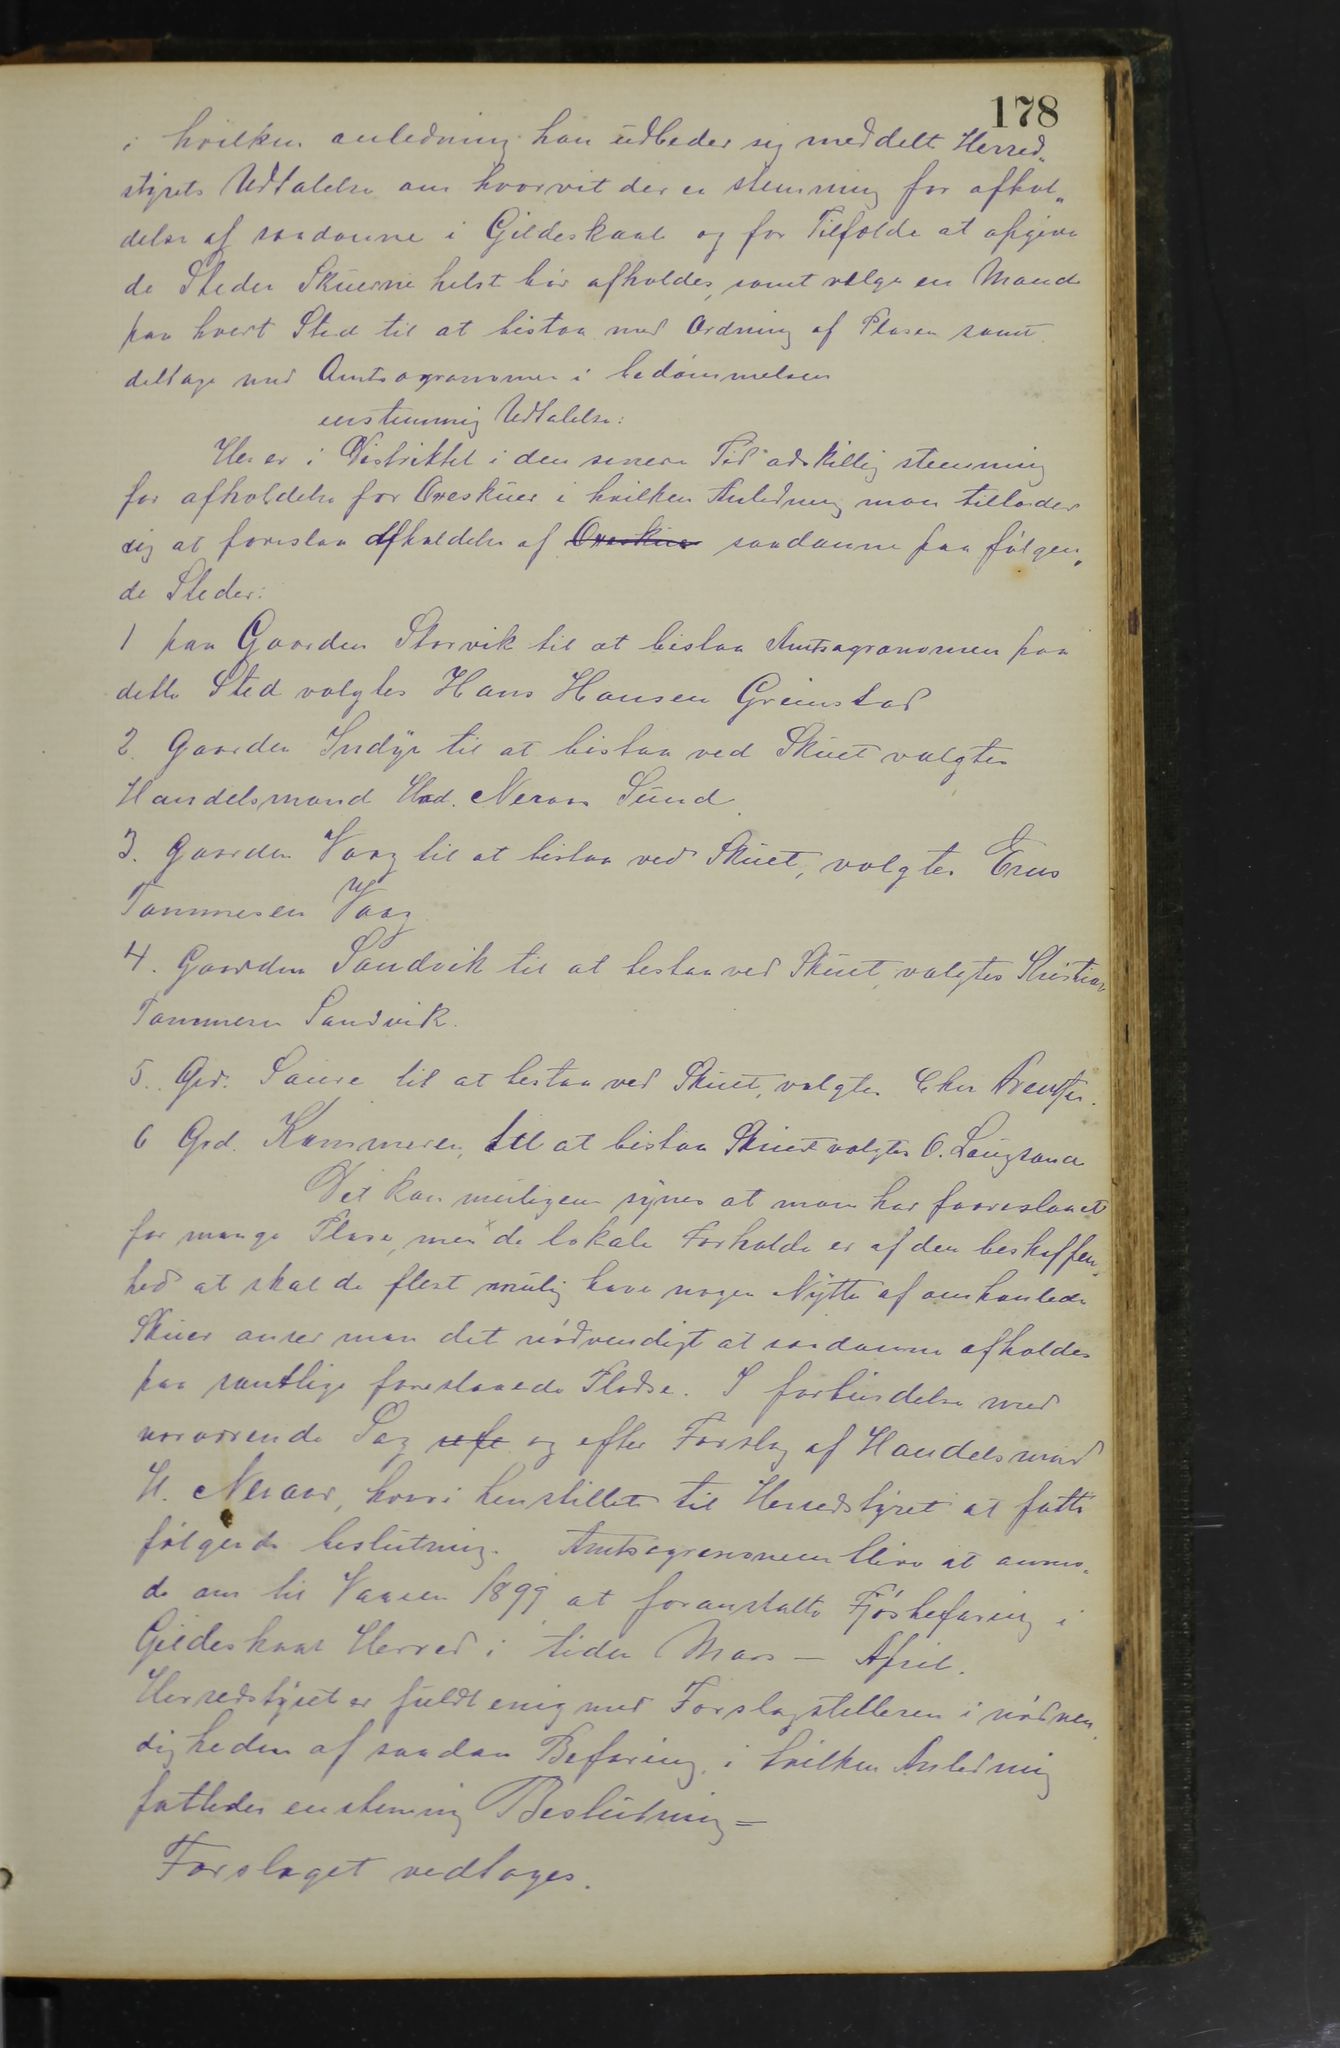 178
i hvilken anledning han udbeder sig meddelt Herred„
styrets Udtalelse om hvorvit der er stemning for afhol„
delse af saadanne i Gildeskaal og for Tilfælde at opgive
de Steder Skuerne helst bør afholdes, samt vælge en Mand
paa hvert Sted til at bistaa med Ordning af Plasen samt
deltage med Amtsagronomen i bedømmelsen
enstemmig Udtalelse:
Her er i Distriktet i den senere Tid adskillig stemning
for afholdelse for Oxeskuer i hvilken Anledning man tillader
sig at foreslaa Afholdelse af Oxeskue saadanne paa følgen„
de Steder:
1 paa Gaarden Storvik til at bistaa Amtsagronomen paa
dette Sted valgtes Hans Hansen Grimstad
2. Gaarden Indyr til at bistaa ved Skuet valgtes
Handelsmand Neraas Sund.
3. Gaarden Vaag til at bistaa ved Skuet, valgtes
Tommesen Vaag.
4. Gaarden Sandvik til at bistaa ved Skuet, valgtes Kristian
Tommesen Sandvik.
5. Grd. Saura til at bistaa ved Skuet, valgtes
6 Grd. Kammeren, til at bistaa Skuet valgtes O. Laugsand
Det kan muligens synes at man har fooreslaaet
for mange Plase, men de lokale Forholde er af den beskaffen„
hed at skal de flest mulig have nogen Nytte af omhanlede
Skuer anser man det nødvendigt at saadanne afholdes
paa samtlige foreslaaede Pladse. I forbindelse med
nærværende Sag og efter Forslag af Handelsmand
H. Neraas, hvori henstilles til Herredstyret at fatte
følgende beslutning. Amtsagronomen blive at anmo„
de om til Vaaren 1899 at foranstalte Fjøsbefaring i
Gildeskaal Herred i tiden Mars — April.
Herredstyret er fuldt enig med Forslagstilleren i nødven„
digheden af saadan Befaring, i hvilken Anledning
fattedes enstemmig Beslutning =
Forslaget vedtages.